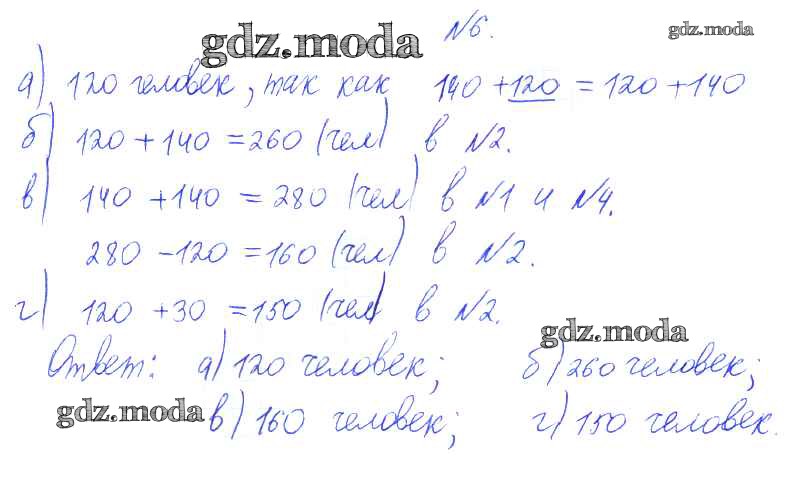 gdz.moda №6. gdz.moda
а) 120 человек, так как 140 + 120 = 120 + 140
б) 120 + 140 = 260 (чел) в №2.
в) 140 + 140 = 280 (чел) в №1 и №4.
280 - 120 = 160 (чел) в №2.
г) 120 + 30 = 150 (чел) в №2.
gdz.moda
Ответ: а) 120 человек; б) 260 человек;
gdz.moda в) 160 человек; г) 150 человек.